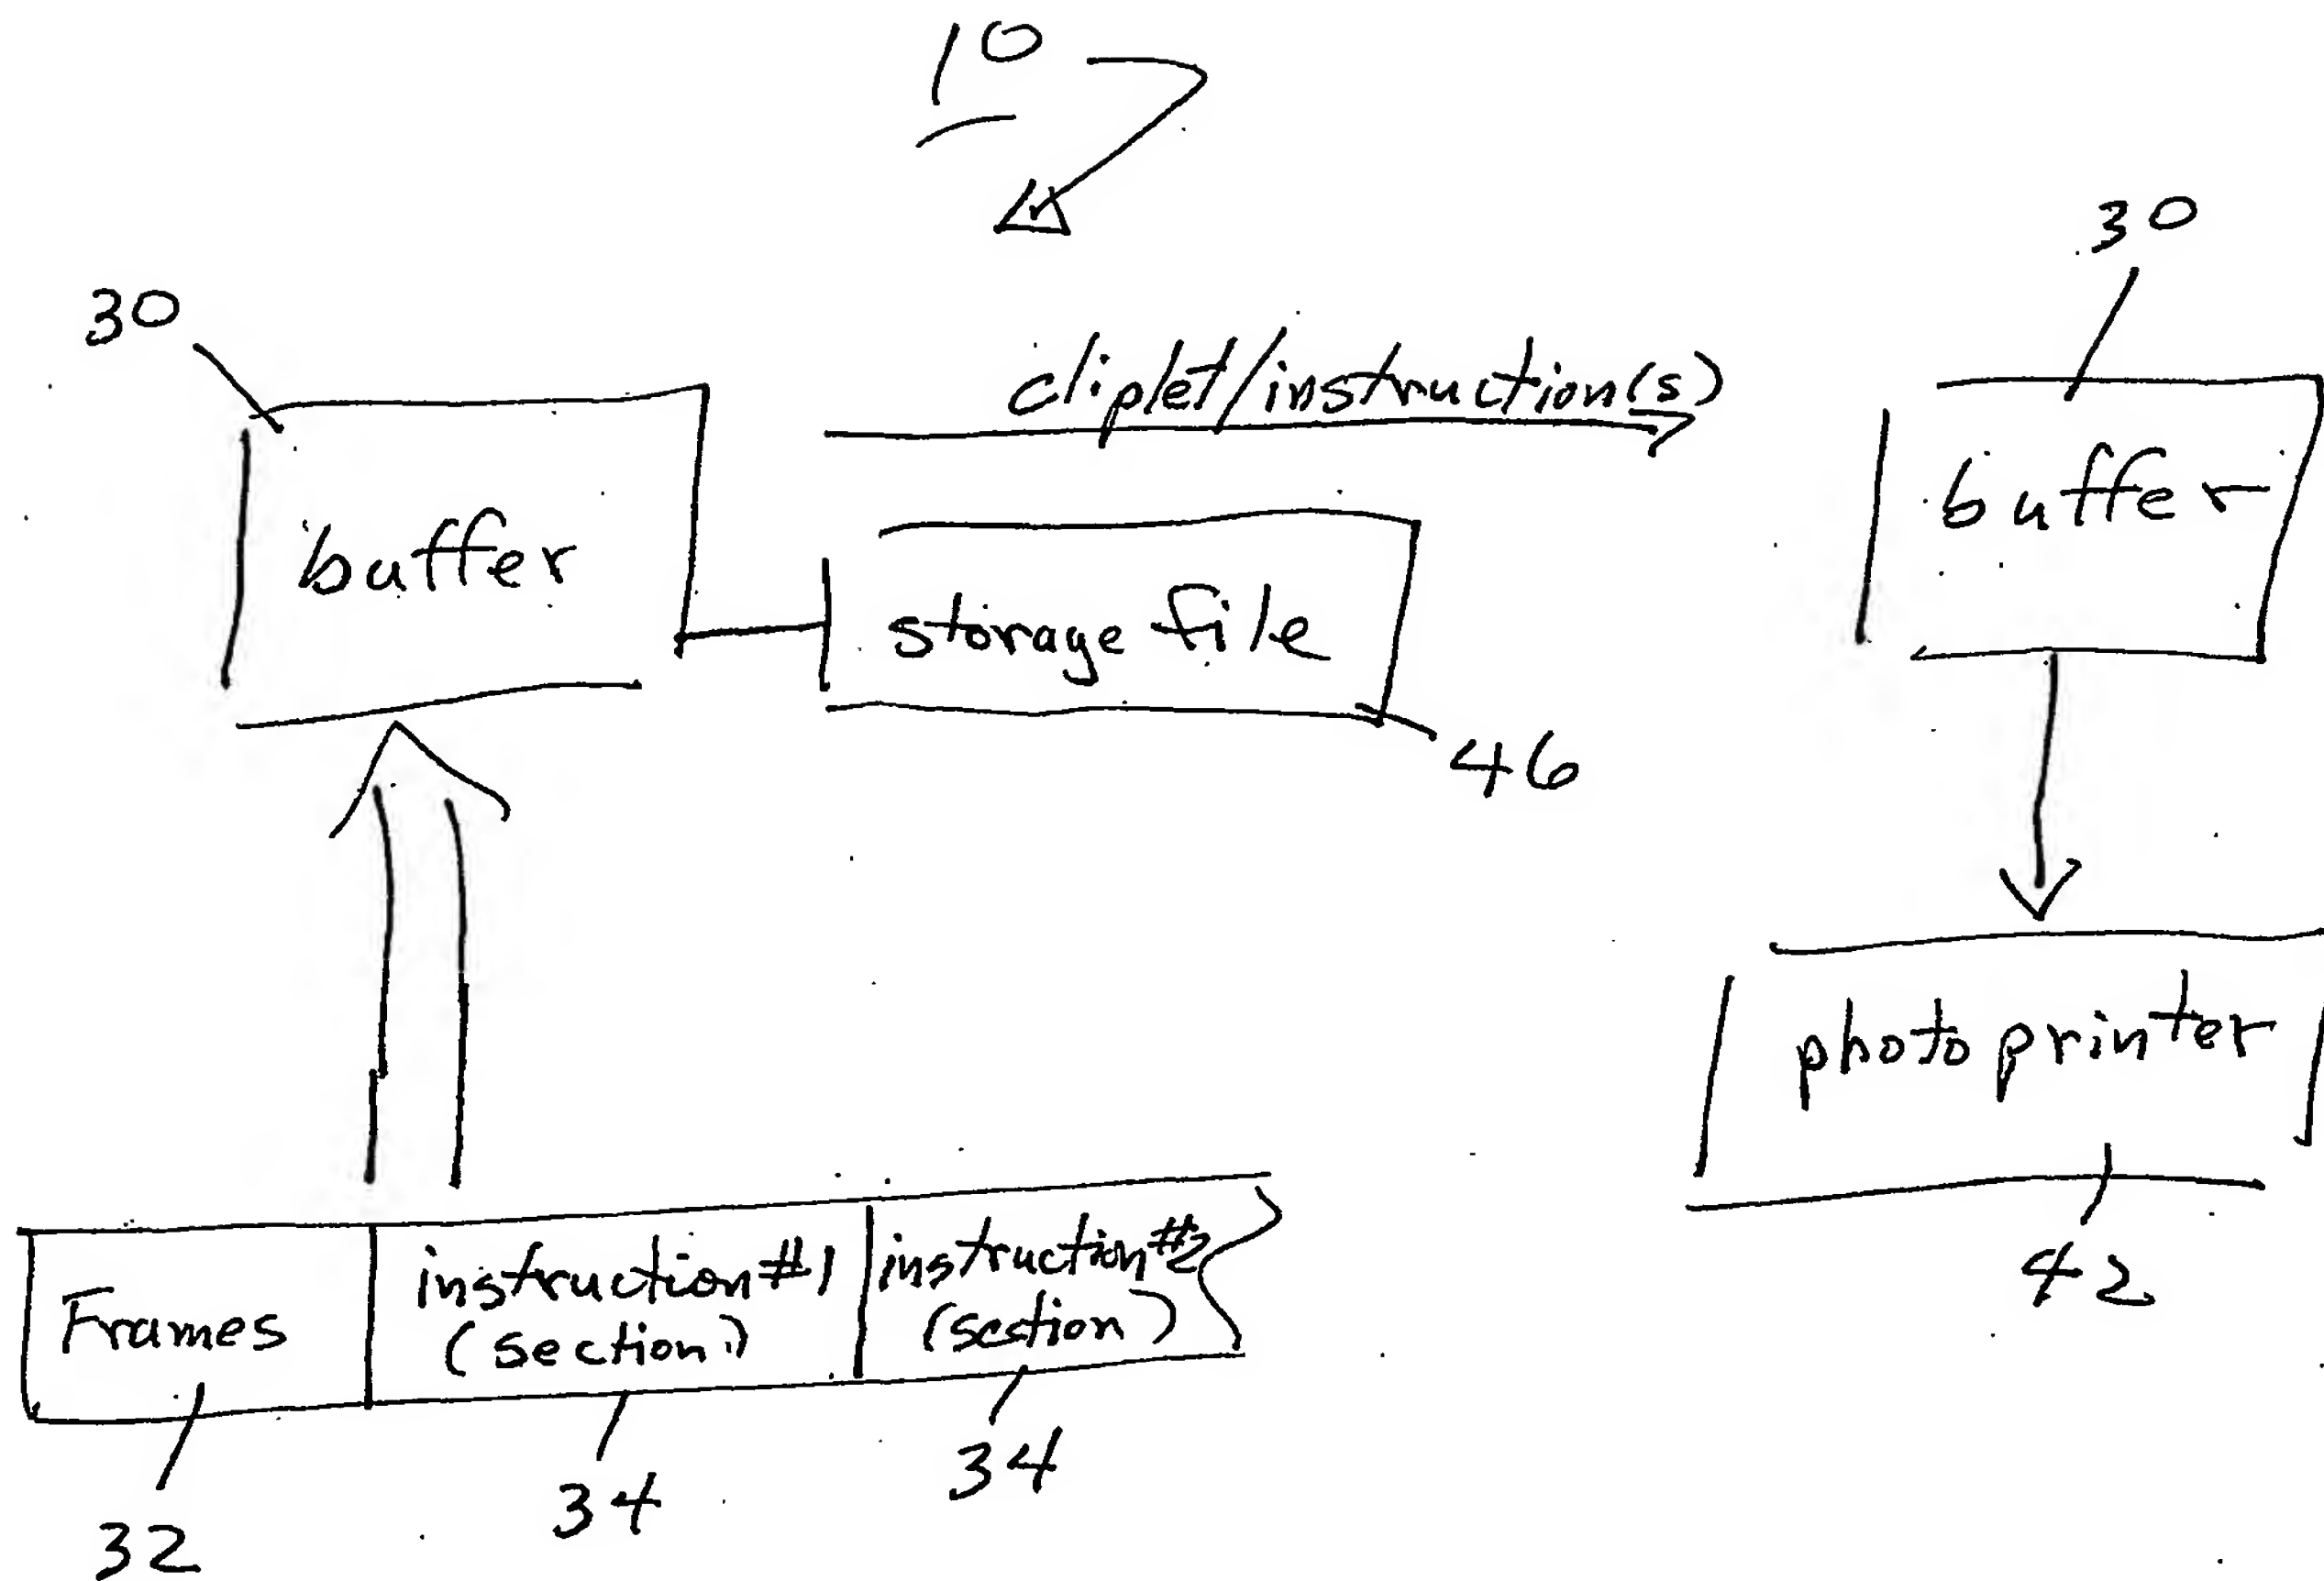 10
30
30
cliplet/instruction(s)
buffer
buffer
storage file
46
photo printer
42
Frames
instruction #1
(section)
instruction #2
(section)
32
34
34